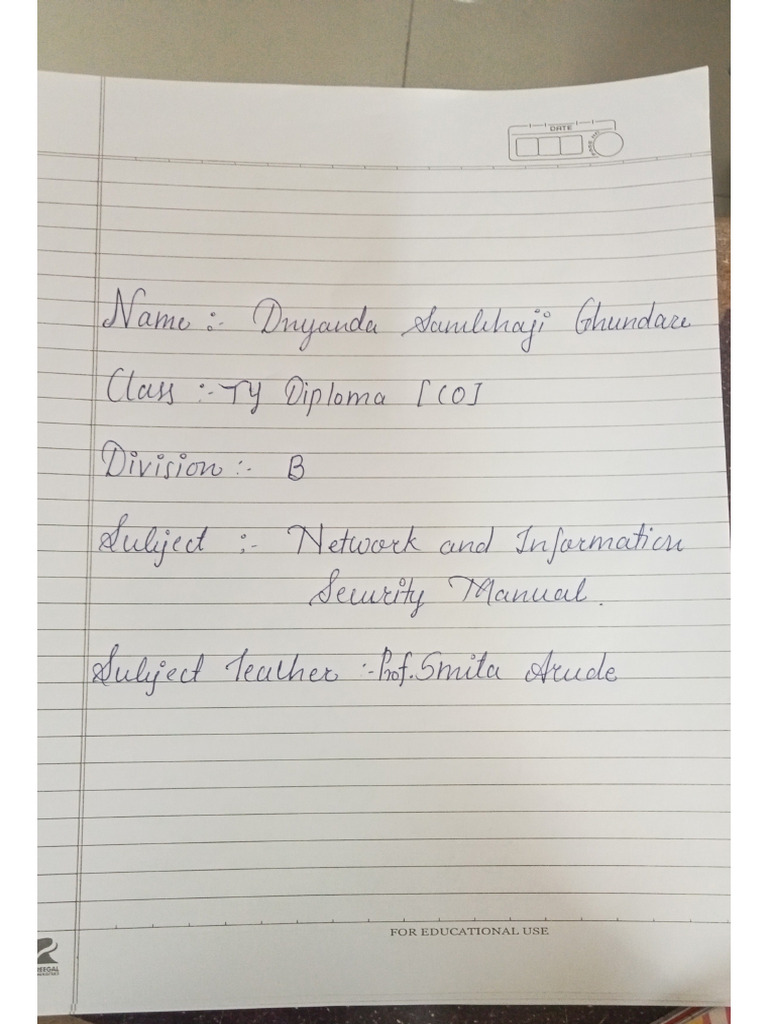 DATE
PAGE NO.
Name :- Dnyanda Sambhaji Ghundare
Class :- TY Diploma [CO]
Division :- B
Subject :- Network and Information
Security Manual.
Subject Teacher :- Prof. Smita Arude
FOR EDUCATIONAL USE
REEGAL